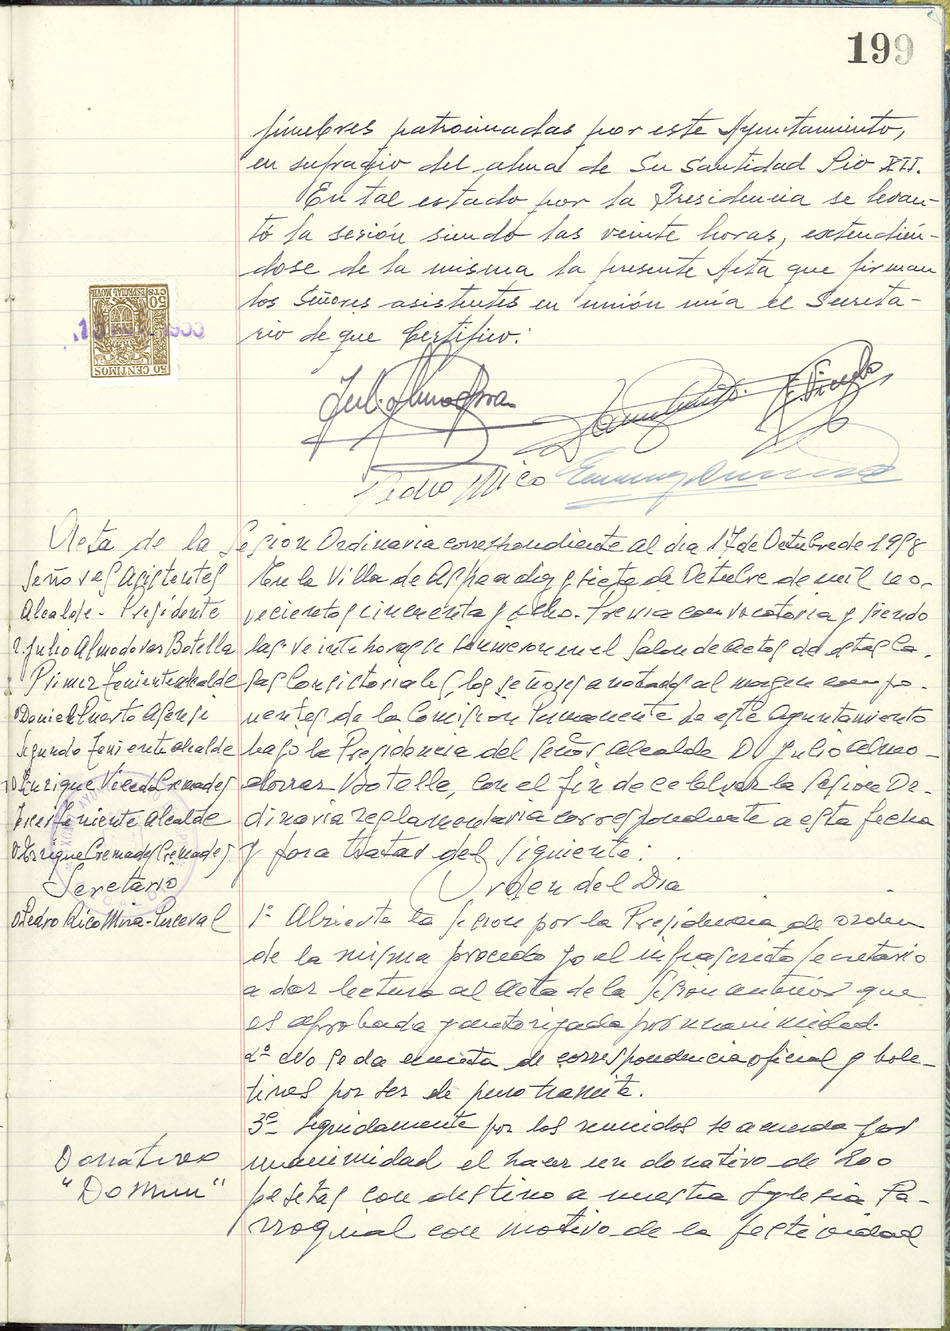 199
fúnebres patrocinadas por este Ayuntamiento,
en sufragio del alma de Su Santidad Pio XII.
En tal estado por la Presidencia se levan-
tó la sesión siendo las veinte horas, extendién-
dose de la misma la presente Acta que firman
los Señores asistentes en unión mía el Secreta-
rio de que Certifico:
50 CENTIMOS
ESPECIAL MOVIL
50 CTS
Pedro Rico
Acta de la Sesion Ordinaria correspondiente al dia 17 de Octubre de 1958
Señores Asistentes
Alcalde - Presidente
D. Julio Almodovar Botella
Primer Teniente alcalde
D Daniel Puerto Asensi
Segundo Teniente alcalde
D Enrique Vicedo Cremades
Tercer Teniente Alcalde
D Enrique Cremades Cremades
Secretario
D. Pedro Rico Mira-Perceval
En la Villa de Aspe a diez y siete de Octubre de mil no-
vecientos cincuenta y ocho. Previa convocatoria y siendo
las veinte horas se reunieron en el Salon de actos de estas Ca-
sas Consistoriales, los señores anotados al margen compo-
nentes de la Comision Permanente de este Ayuntamiento
bajo la Presidencia del Señor Alcalde D Julio Almo-
dovar Botella, con el fin de celebrar la Sesion Or-
dinaria reglamentaria correspondiente a esta fecha
y para tratar del siguiente:
Orden del Dia
1º Abierta la Sesion por la Presidencia de orden
de la misma procedo yo el infrascrito Secretario
a dar lectura al acta de la Sesion anterior que
es aprobada y autorizada por unanimidad.
2º No se da cuenta de correspondencia oficial y bole-
tines por ser de puro tramite.
3º Seguidamente por los reunidos se acuerda por
unanimidad el hacer un donativo de 200
pesetas con destino a nuestra Iglesia Pa-
rroquial con motivo de la festividad
Donativo
"Domun"